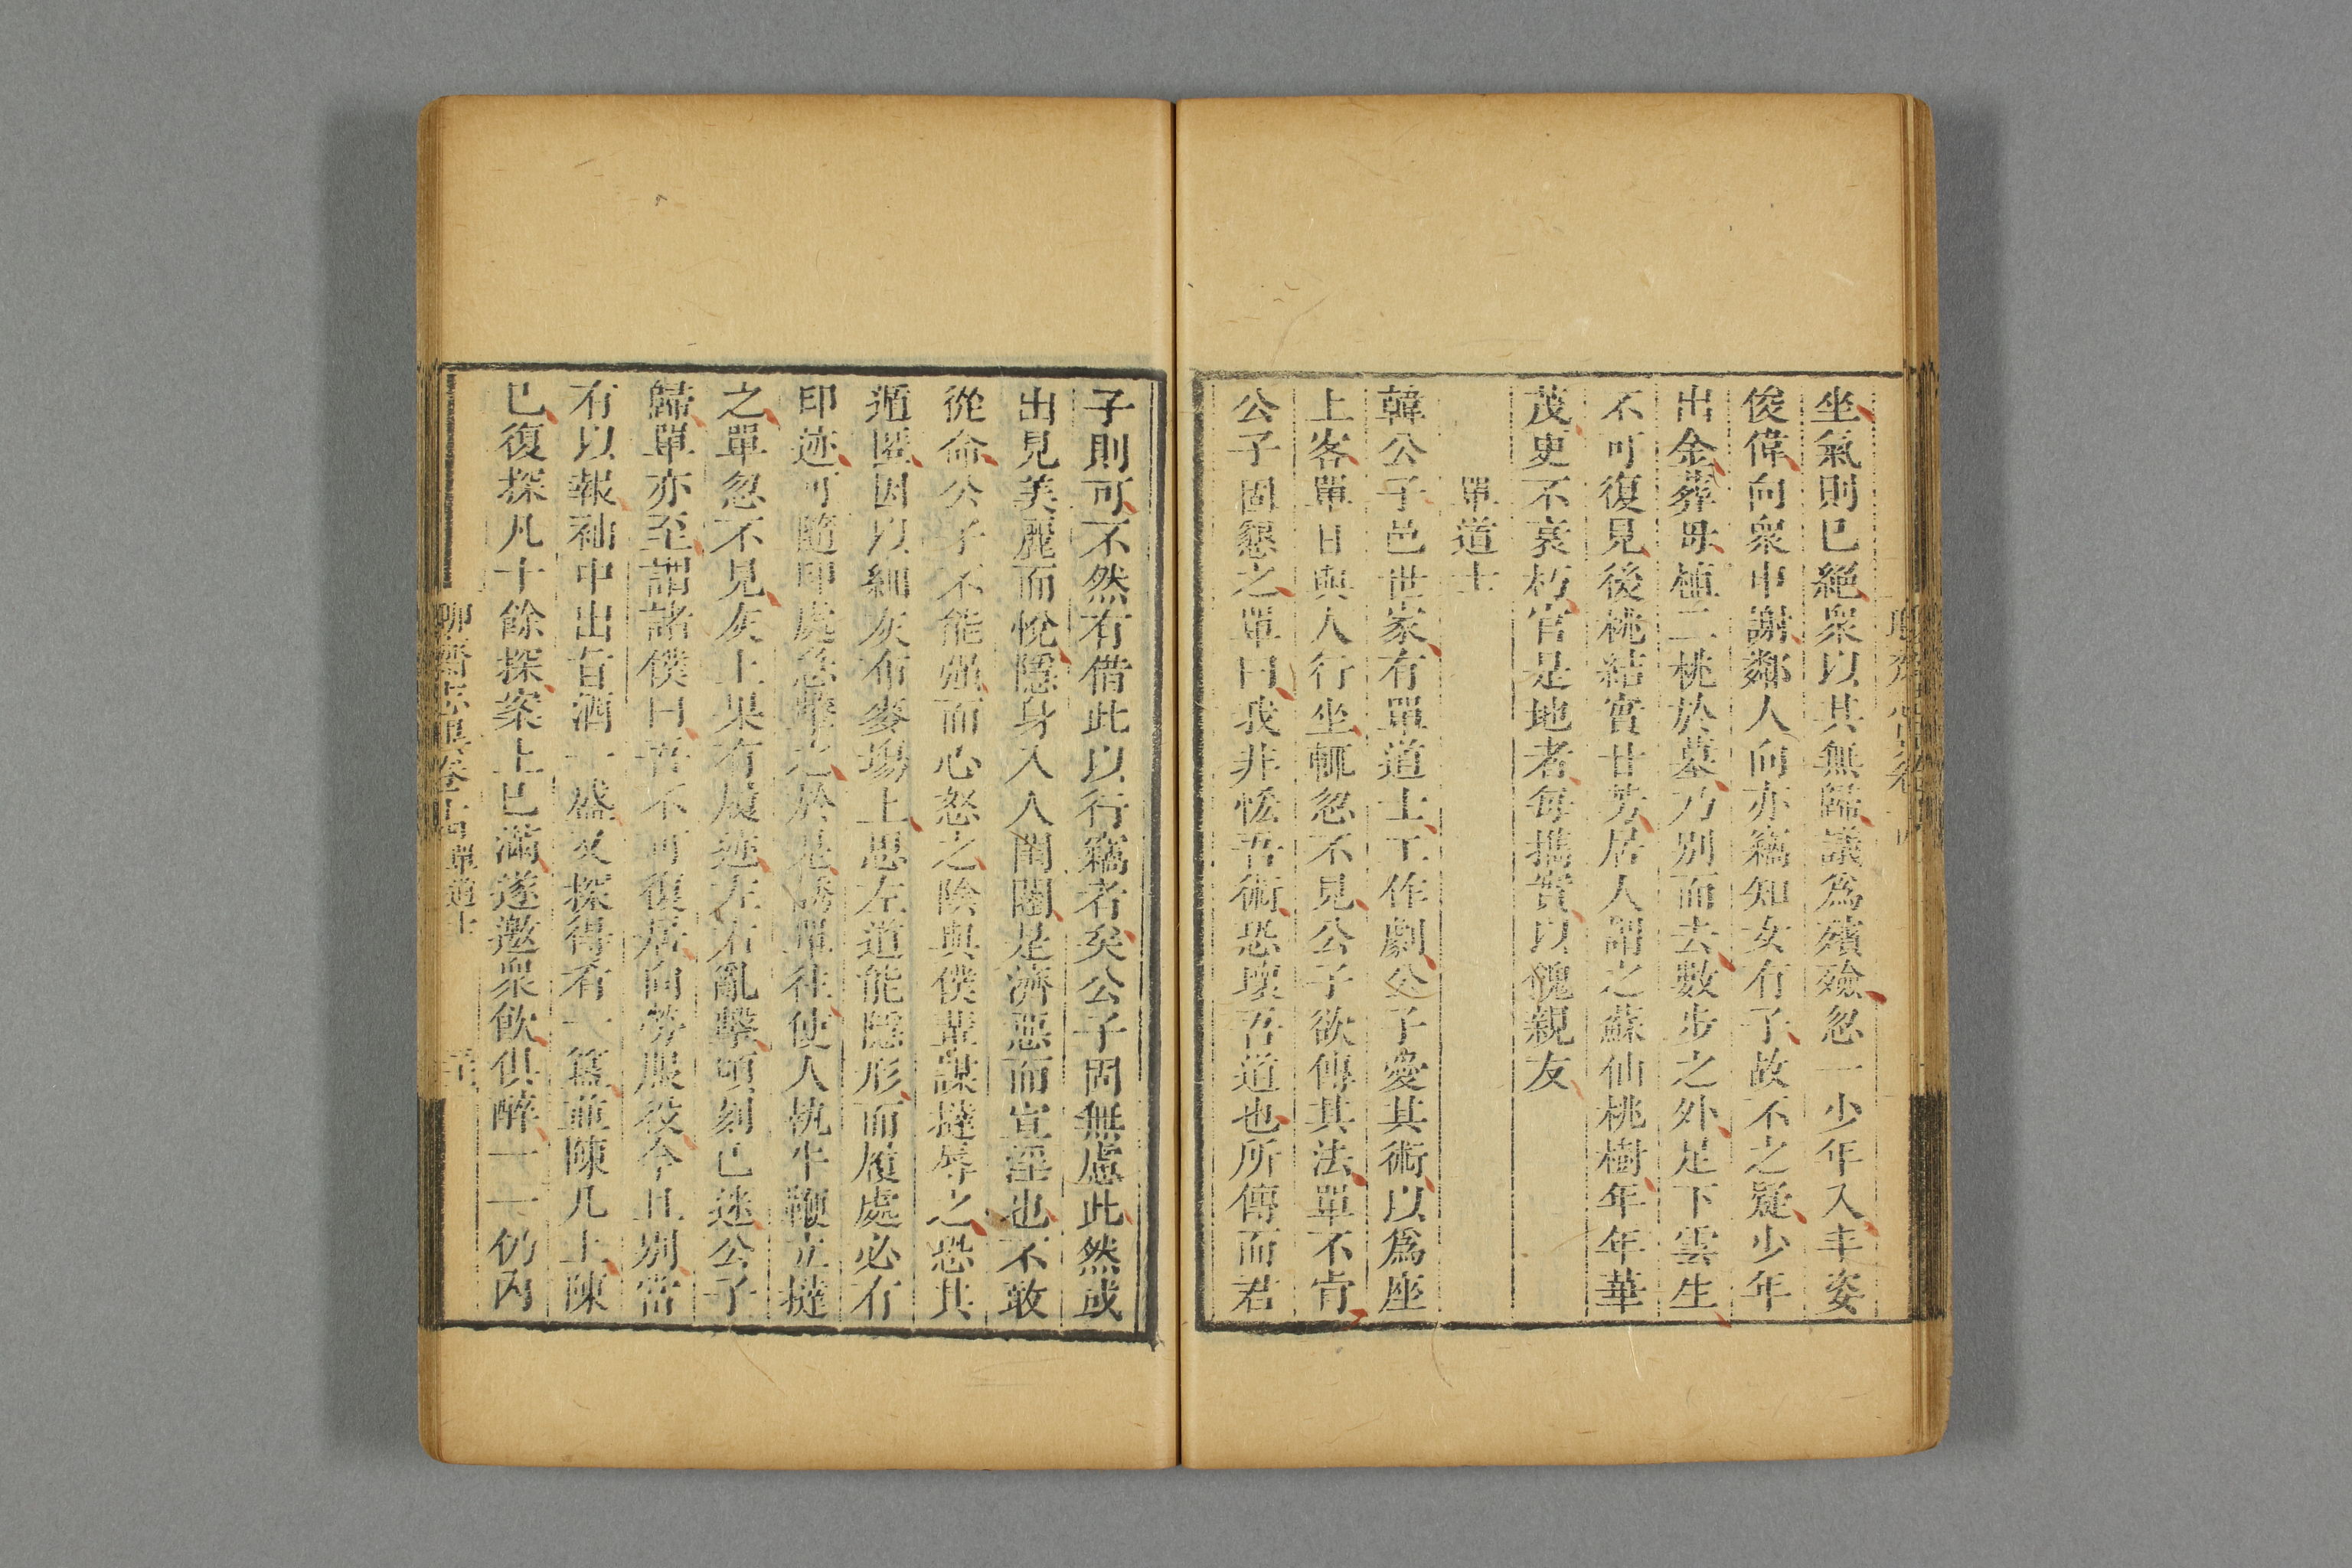 坐氣則已絕衆以其無歸議爲殯殮忽一少年入丰姿
俊偉向衆申謝鄰人向亦竊知女有子故不之疑少年
出金葬母植二桃於墓乃別而去數步之外足下雲生
不可復見後桃結實甘芳居人謂之蘇仙桃樹年年華
茂更不衰朽官是地者每攜實以餽親友
單道士
韓公子邑世家有單道士工作劇公子愛其術以爲座
上客單日與人行坐輒忽不見公子欲傳其法單不肯
公子固懇之單曰我非恡吾術恐壞吾道也所傳而君
子則可不然有借此以行竊者矣公子固無慮此然或
出見美麗而悅隱身入人閨闥是濟惡而宣淫也不敢
從命公子不能強而心怒之陰與僕輩謀撻辱之恐其
遁匿因以細灰布麥場上思左道能隱形而履處必有
印迹可隨印處急擊之於是誘單往使人執牛鞭立撻
之單忽不見灰上果有履迹左右亂擊頃刻已迷公子
歸單亦至謂諸僕曰吾不可復居向勞服役今且別當
有以報袖中出旨酒一盛又探得肴一簋並陳几上陳
已復探凡十餘探案上已滿遂邀衆飲俱醉一一仍內
聊齋志異卷十四單道士